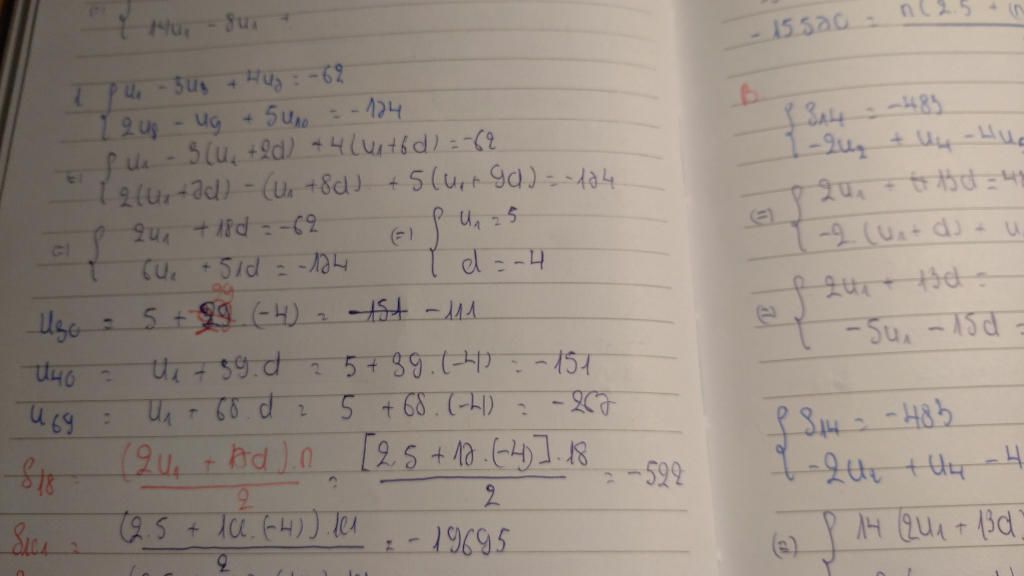 14u₁ - 8u₁ +
1 { u₁ - 3u₃ + 4u7 = -62
{ 2u8 - u9 + 5u₁₀ = -174
(=) { u₁ - 3(u₁ + 2d) + 4(u₁+6d) = -62
{ 2(u₁+7d) - (u₁ + 8d) + 5(u₁ + 9d) = -174
(=) { 2u₁ + 18d = -62 (=) { u₁ = 5
{ 6u₁ + 51d = -174 { d = -4
29
u30 = 5 + 29 . (-4) = -151 -111
u40 = u₁ + 39.d = 5 + 39.(-4) = -151
u69 = u₁ + 68.d = 5 + 68.(-4) = -267
S18 = (2u₁ + 17d).n / 2 = [2.5 + 17.(-4)].18 / 2 = -522
S101 = (2.5 + 100.(-4)).101 / 2 = -19695
n(2.5 +
B
{ S14 = -483
{ -2u₂ + u4 - 4u
(=) { 2u₁ + 13d =
{ -2.(u₁+d) + u
(=) { 2u₁ + 13d =
{ -5u₁ - 15d =
{ S14 = -483
{ -2u₂ + u4 - 4
(=) { 14(2u₁ + 13d)